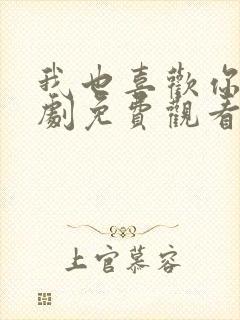 我也喜歡你
劇免費觀看
上官慕容